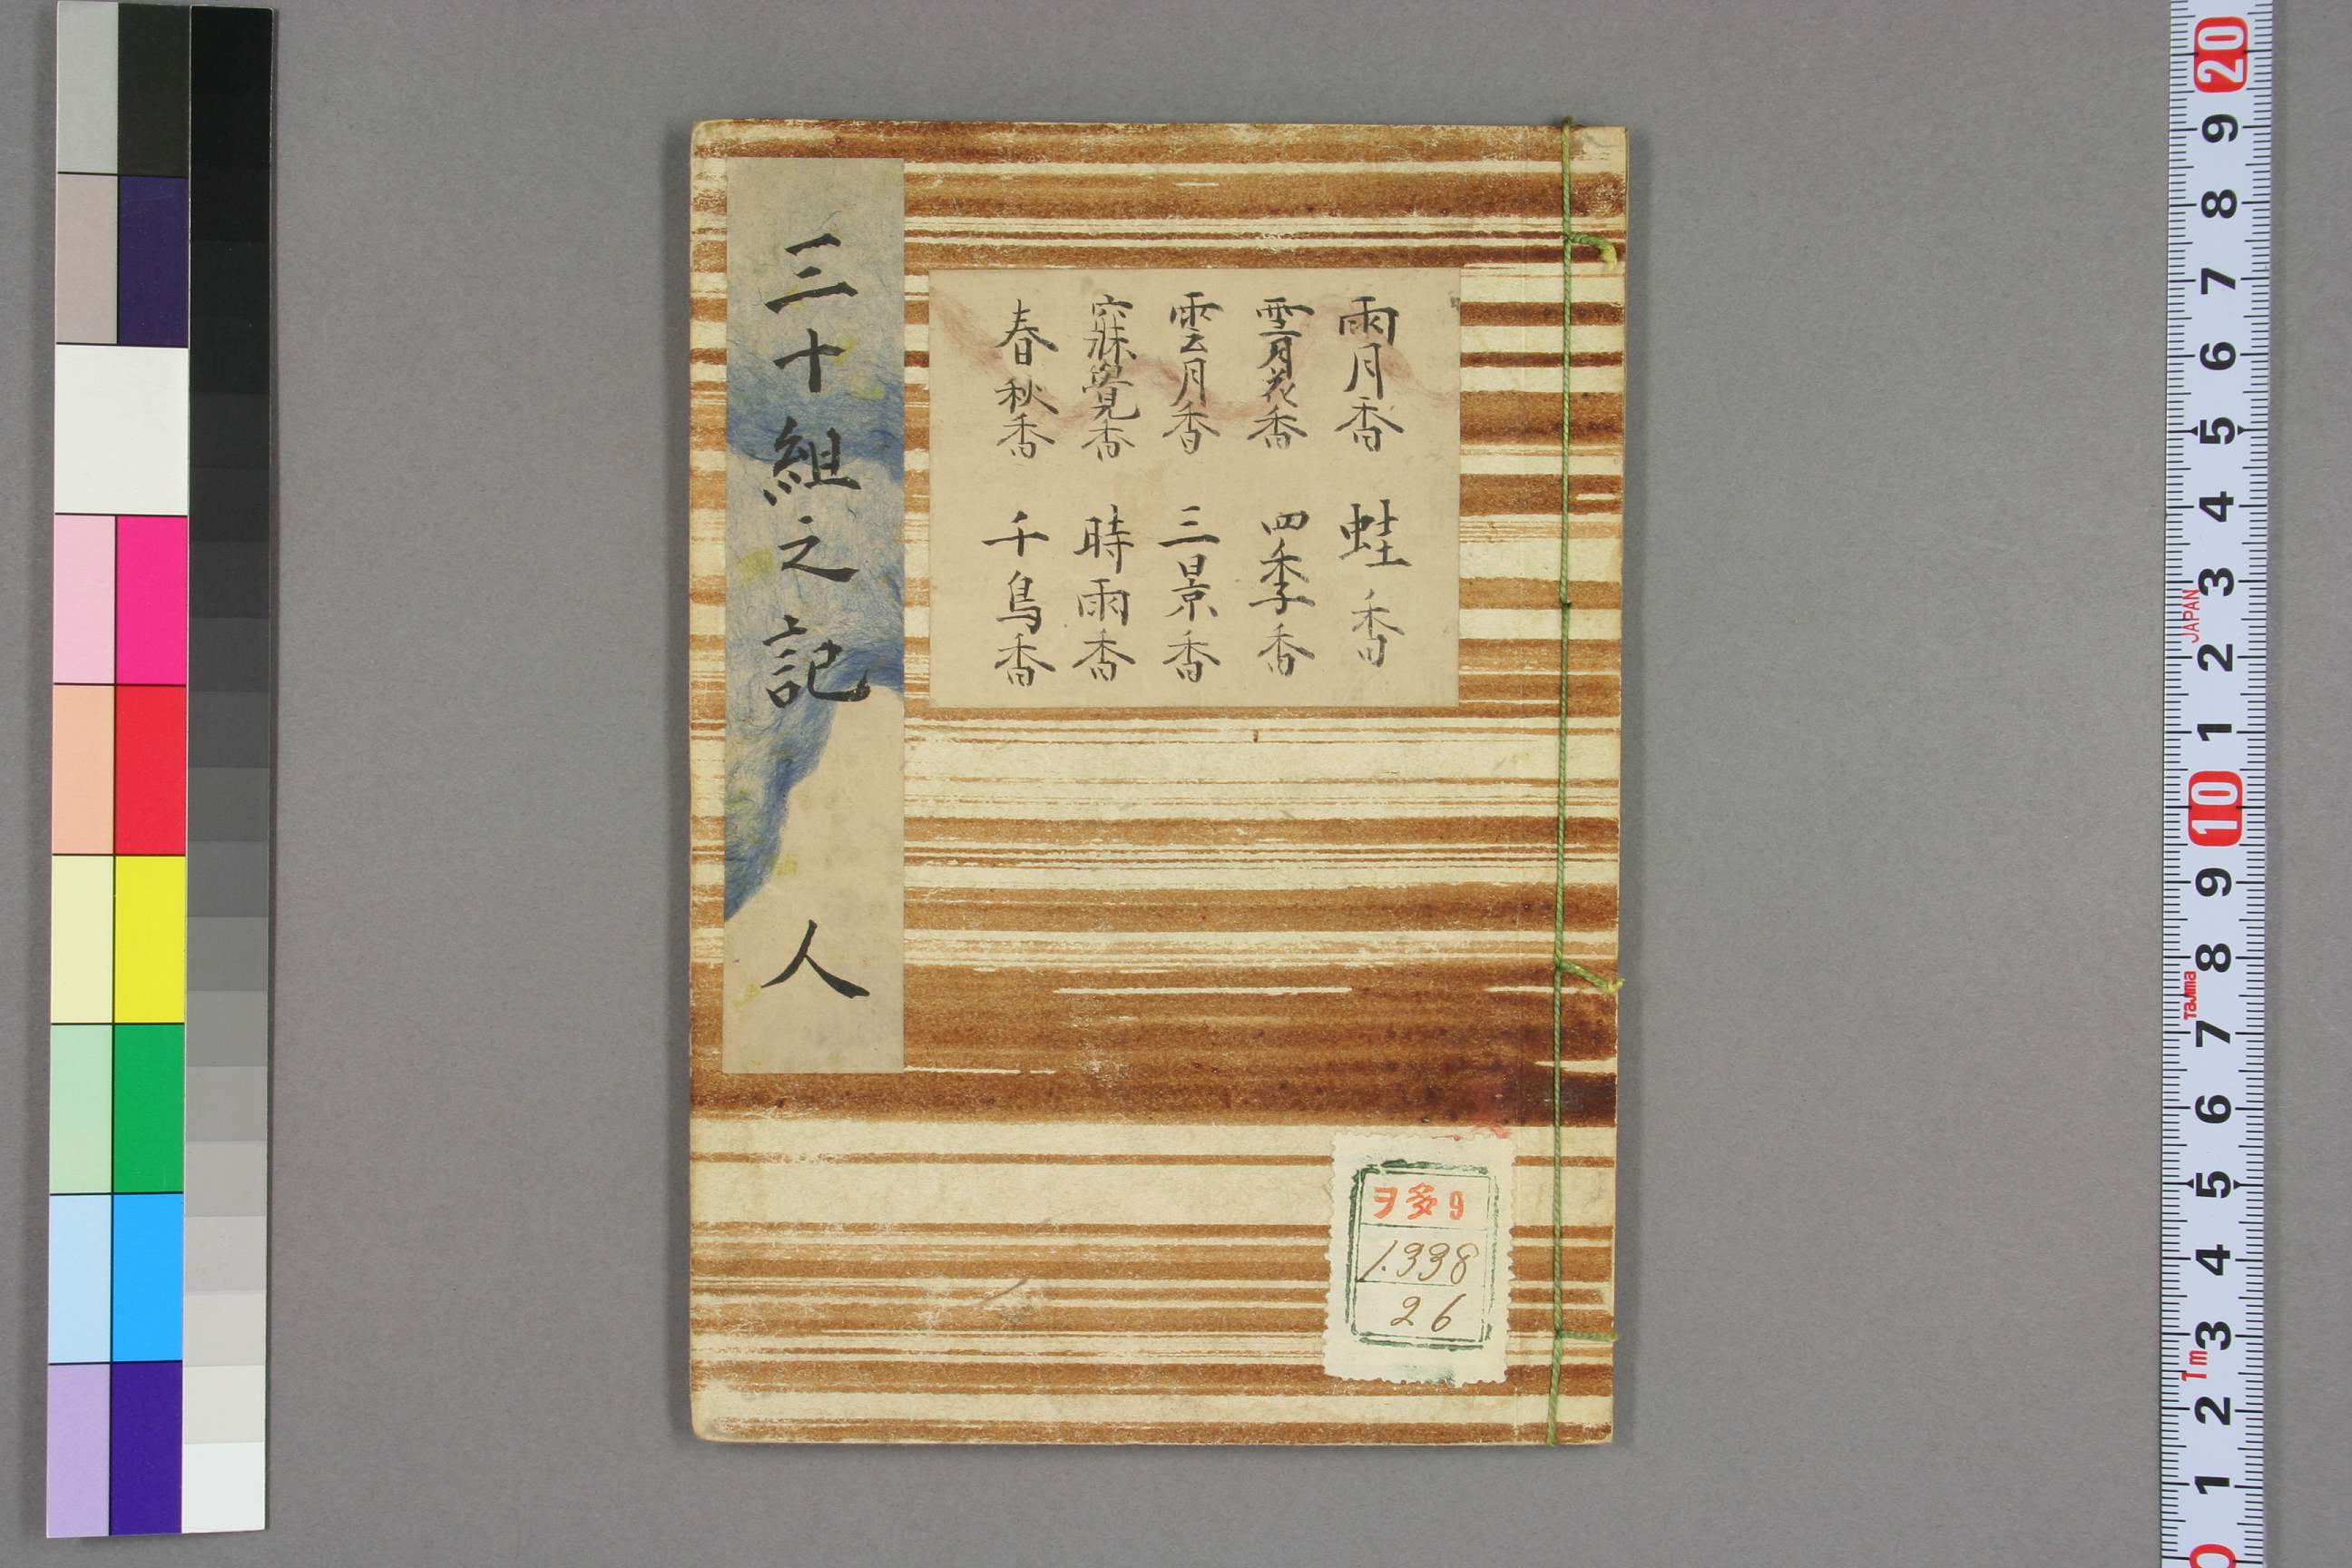 三十組之記 人
雨月香 蛙香
雪月花香 四季香
雲月香 三景香
寐覺香 時雨香
春秋香 千鳥香
ヲ多9
1.338
26
20
9
8
7
6
5
4
3
2
1
10
9
8
7
6
5
4
3
2
1
0
JAPAN
Tajima
Tm